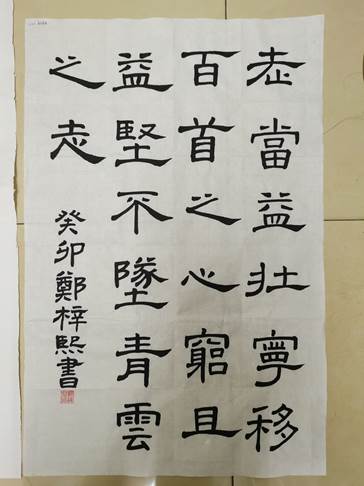 老當益壯寧移
百首之心窮且
益堅不墜青雲
之志
癸卯鄭梓熙書